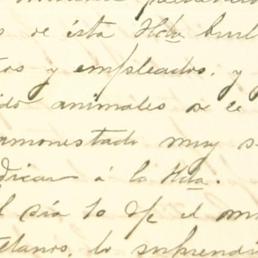 s de ésta Hda burl
os y empleados, y
ido animales de ce
amonestado muy s
dicar á la Hda.
l día 10 of/c el m
tlanos, lo sorprendi